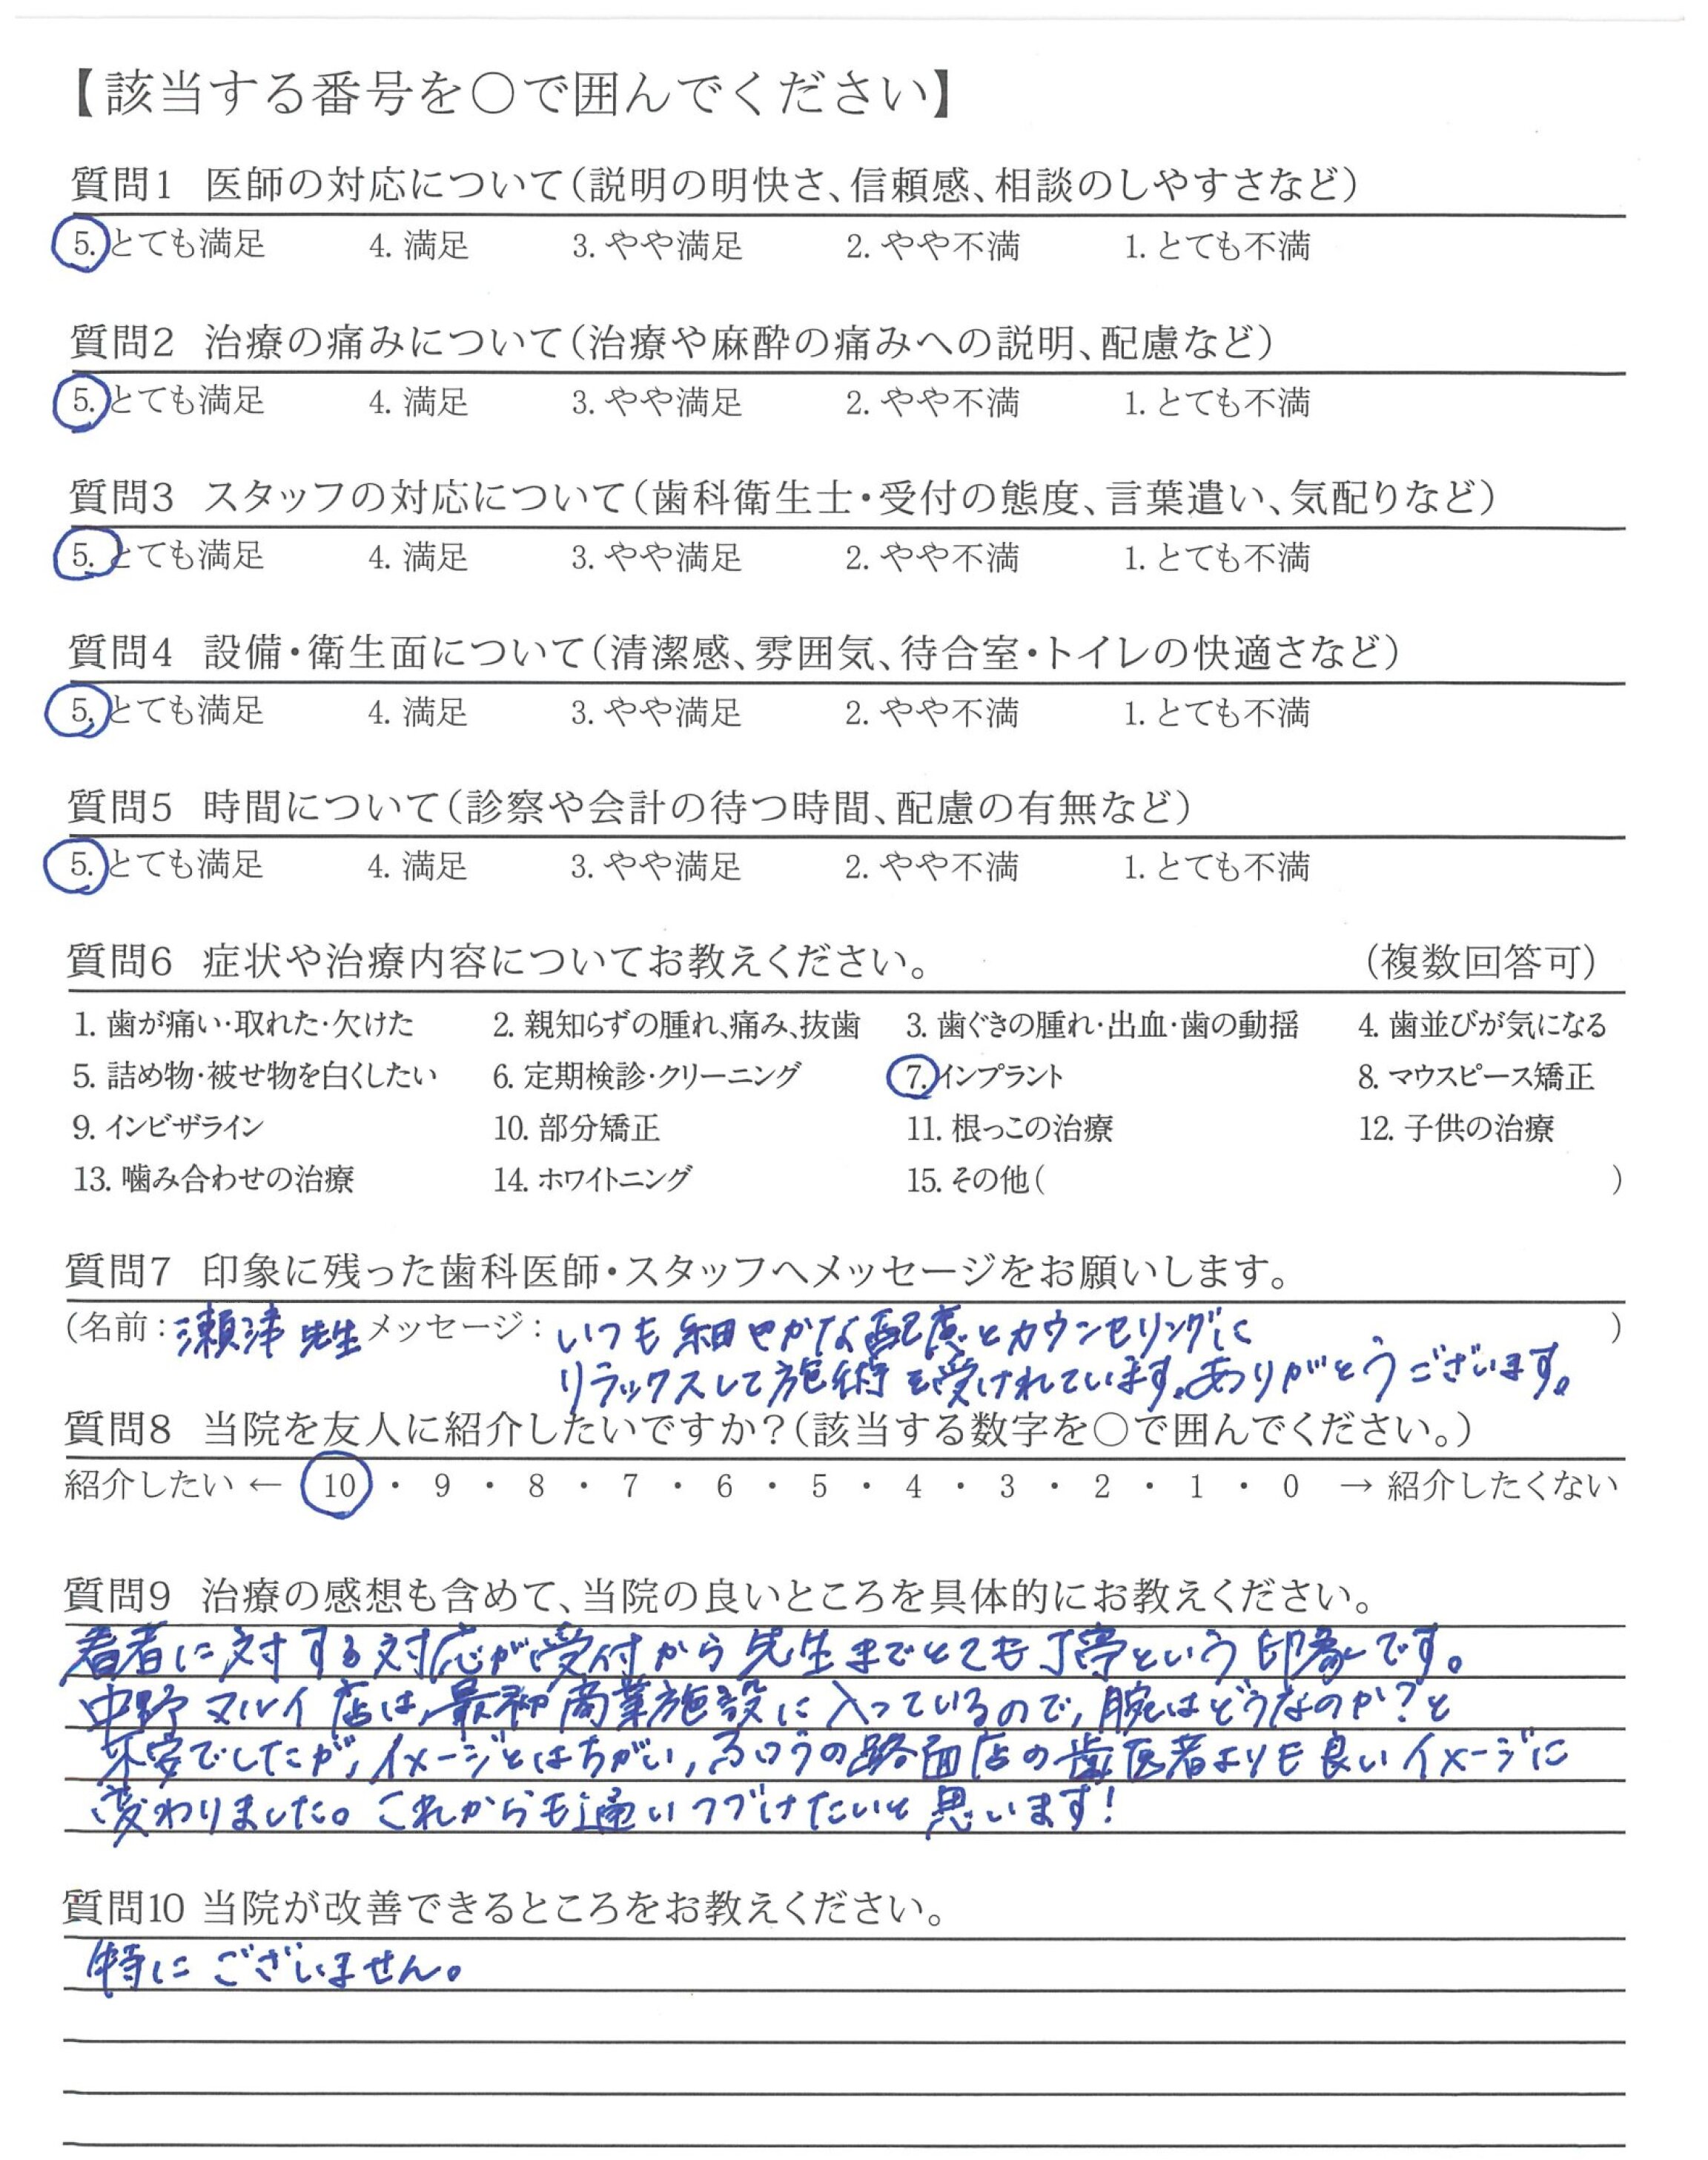 【該当する番号を○で囲んでください】
質問1 医師の対応について(説明の明快さ、信頼感、相談のしやすさなど)
5. とても満足 4. 満足 3. やや満足 2. やや不満 1. とても不満
質問2 治療の痛みについて(治療や麻酔の痛みへの説明、配慮など)
5. とても満足 4. 満足 3. やや満足 2. やや不満 1. とても不満
質問3 スタッフの対応について(歯科衛生士・受付の態度、言葉遣い、気配りなど)
5. とても満足 4. 満足 3. やや満足 2. やや不満 1. とても不満
質問4 設備・衛生面について(清潔感、雰囲気、待合室・トイレの快適さなど)
5. とても満足 4. 満足 3. やや満足 2. やや不満 1. とても不満
質問5 時間について(診察や会計の待つ時間、配慮の有無など)
5. とても満足 4. 満足 3. やや満足 2. やや不満 1. とても不満
質問6 症状や治療内容についてお教えください。 (複数回答可)
1. 歯が痛い・取れた・欠けた 2. 親知らずの腫れ、痛み、抜歯 3. 歯ぐきの腫れ・出血・歯の動揺 4. 歯並びが気になる
5. 詰め物・被せ物を白くしたい 6. 定期検診・クリーニング 7. インプラント 8. マウスピース矯正
9. インビザライン 10. 部分矯正 11. 根っこの治療 12. 子供の治療
13. 噛み合わせの治療 14. ホワイトニング 15. その他( )
質問7 印象に残った歯科医師・スタッフへメッセージをお願いします。
(名前:瀬津 先生 メッセージ:いつも細やかな配慮とカウンセリングに )
リラックスして施術を受けれています。ありがとうございます。
質問8 当院を友人に紹介したいですか?(該当する数字を○で囲んでください。)
紹介したい ← 10 ・ 9 ・ 8 ・ 7 ・ 6 ・ 5 ・ 4 ・ 3 ・ 2 ・ 1 ・ 0 → 紹介したくない
質問9 治療の感想も含めて、当院の良いところを具体的にお教えください。
患者に対する対応が受付から先生までとても丁寧という印象です。
中野マルイ店は、最初商業施設に入っているので、腕はどうなのか?と
不安でしたが、イメージとはちがい、ふつうの路面店の歯医者よりも良いイメージに
変わりました。これからも通いつづけたいと思います!
質問10 当院が改善できるところをお教えください。
特にございません。